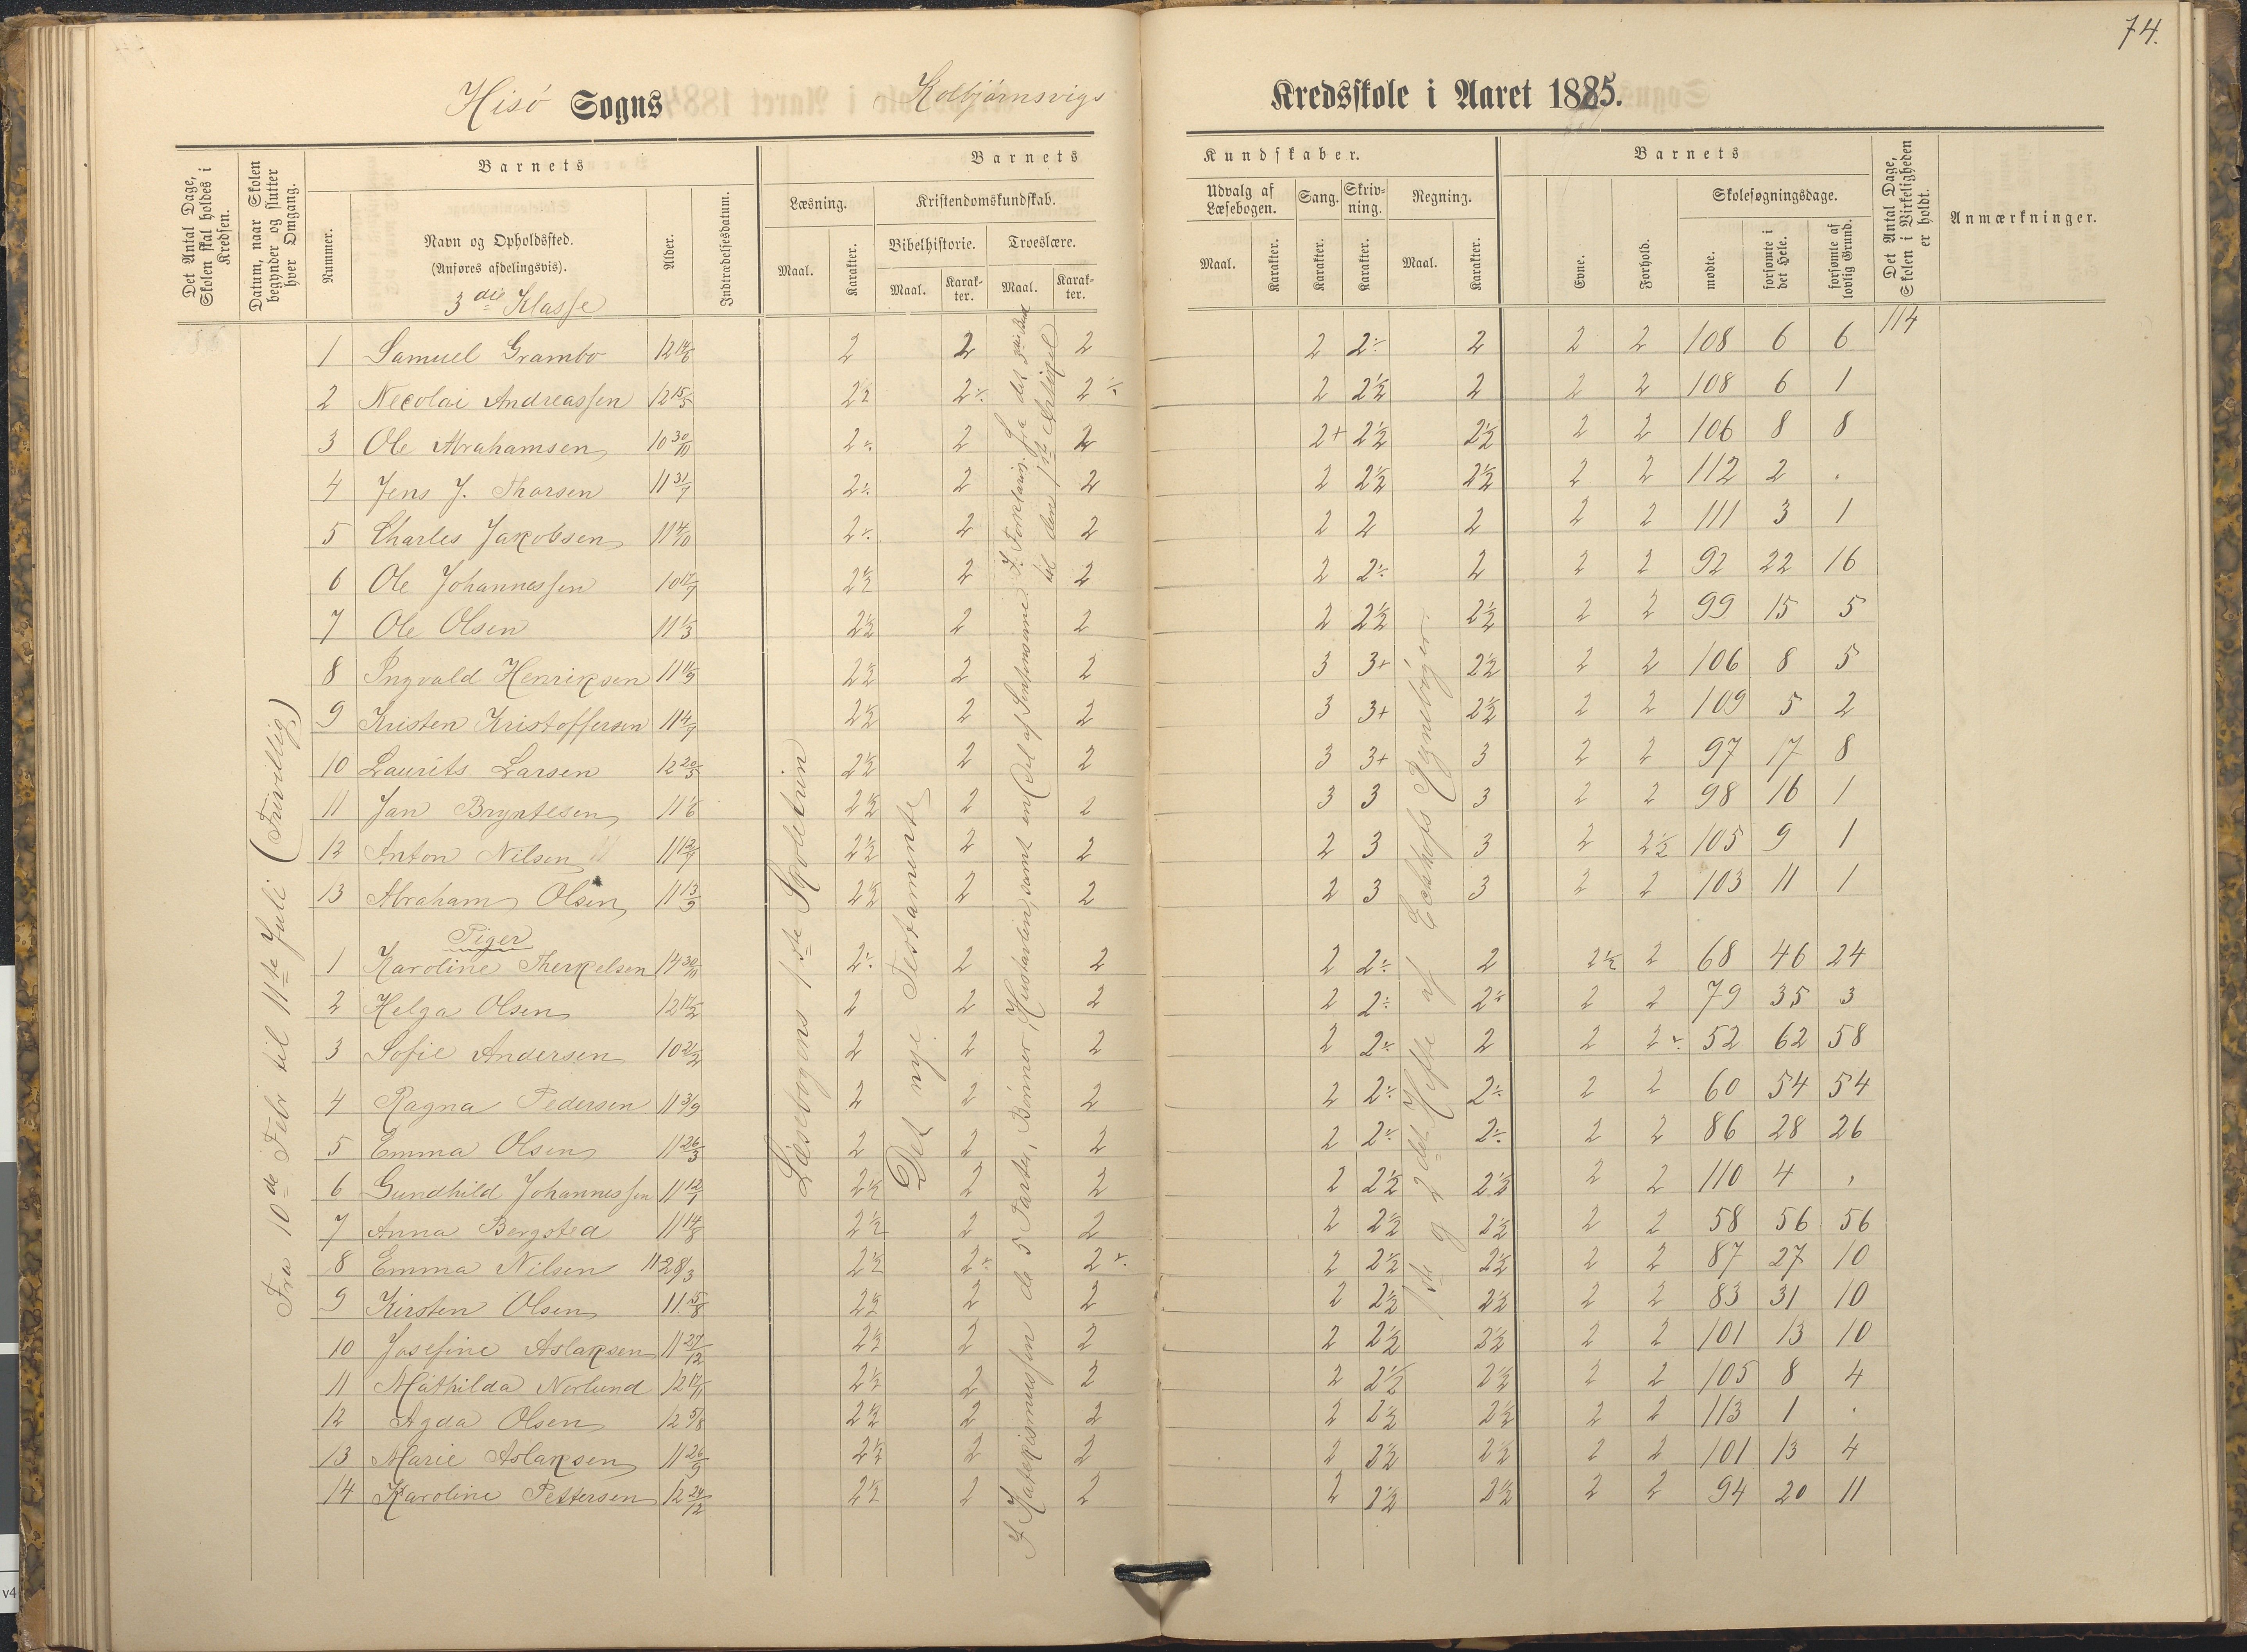 74.
Hisö Sogns Kolbjörnsvigs Kredsskole i Aaret 1885.
Det Antal Dage, Skolen skal holdes i Kredsen.
Datum, naar Skolen begynder og slutter hver Omgang.
Barnets
Nummer.
Navn og Opholdssted.
(Anføres afdelingsvis).
3die Klasse
Alder.
Indtrædelsesdatum.
Barnets Kundskaber.
Læsning.
Maal.
Karakter.
Kristendomskundskab.
Bibelhistorie.
Maal.
Karakter.
Troeslære.
Maal.
Karakter.
Udvalg af Læsebogen.
Maal.
Karakter.
Sang.
Karakter.
Skrivning.
Karakter.
Regning.
Maal.
Karakter.
Barnets
Evne.
Forhold.
Skolesøgningsdage.
mødte.
forsømte i det Hele.
forsømte af lovlig Grund.
Det Antal Dage, Skolen i Virkeligheden er holdt.
Anmærkninger.
Fra 10de Febr til 11te Juli (Frivillig)
Læsebogens 1ste Skoletrin
Det nye Testamente
I Katekismussen de 5 Parter, Bönner, Hustavlen, samt en Del af Skriftemaalene. I Forklaring fra det til den 1ste Artikel
1ste og 2det Hefte af Eckhofs Regnebøger.
114
1 Samuel Grambo 12 14/6 2 2 2 2 2÷ 2 2 2 108 6 6
2 Necolai Andreassen 12 15/5 2½ 2÷ 2÷ 2 2½ 2 2 2 108 6 1
3 Ole Abrahamsen 10 30/10 2÷ 2 2 2+ 2½ 2½ 2 2 106 8 8
4 Jens J. Thorsen 11 31/7 2÷ 2 2 2 2½ 2½ 2 2 112 2 .
5 Charles Jakobsen 11 4/10 2÷ 2 2 2 2 2 2 2 111 3 1
6 Ole Johannessen 10 17/9 2½ 2 2 2 2÷ 2 2 2 92 22 16
7 Ole Olsen 11 1/3 2½ 2 2 2 2½ 2½ 2 2 99 15 5
8 Ingvald Henriksen 11 11/9 2½ 2 2 3 3+ 2½ 2 2 106 8 5
9 Kristen Kristoffersen 11 4/9 2½ 2 2 3 3+ 2½ 2 2 109 5 2
10 Laurits Larsen 12 20/5 2½ 2 2 3 3+ 3 2 2 97 17 8
11 Jan Bryntesen 11 1/6 2½ 2 2 3 3 3 2 2 98 16 1
12 Anton Nilsen 11 12/9 2½ 2 2 2 3 3 2 2½ 105 9 1
13 Abraham Olsen 11 13/9 2½ 2 2 2 3 3 2 2 103 11 1
Piger
1 Karoline Therkelsen 14 30/10 2÷ 2 2 2 2÷ 2 2½ 2 68 46 24
2 Helga Olsen 12 17/2 2 2 2 2 2÷ 2÷ 2 2 79 35 3
3 Sofie Andersen 10 21/2 2 2 2 2 2÷ 2 2 2÷ 52 62 58
4 Ragna Pedersen 11 3/9 2 2 2 2 2÷ 2÷ 2 2 60 54 54
5 Emma Olsen 11 26/3 2 2 2 2 2÷ 2÷ 2 2 86 28 26
6 Gundhild Johannessen 11 12/1 2½ 2 2 2 2½ 2½ 2 2 110 4 .
7 Anna Bergsted 11 14/8 2½ 2 2 2 2½ 2½ 2 2 58 56 56
8 Emma Nilsen 11 28/3 2½ 2÷ 2÷ 2 2½ 2½ 2 2 87 27 10
9 Kirsten Olsen 11 15/8 2½ 2 2 2 2½ 2½ 2 2 83 31 10
10 Josefine Aslaksen 11 27/12 2½ 2 2 2 2½ 2½ 2 2 101 13 10
11 Mathilda Norlund 12 17/11 2½ 2 2 2 2½ 2½ 2 2 105 8 4
12 Agda Olsen 12 5/8 2½ 2 2 2 2½ 2½ 2 2 113 1 .
13 Marie Aslaksen 11 26/9 2½ 2 2 2 2½ 2½ 2 2 101 13 4
14 Karoline Pettersen 12 24/12 2½ 2 2 2 2½ 2½ 2 2 94 20 11
v4